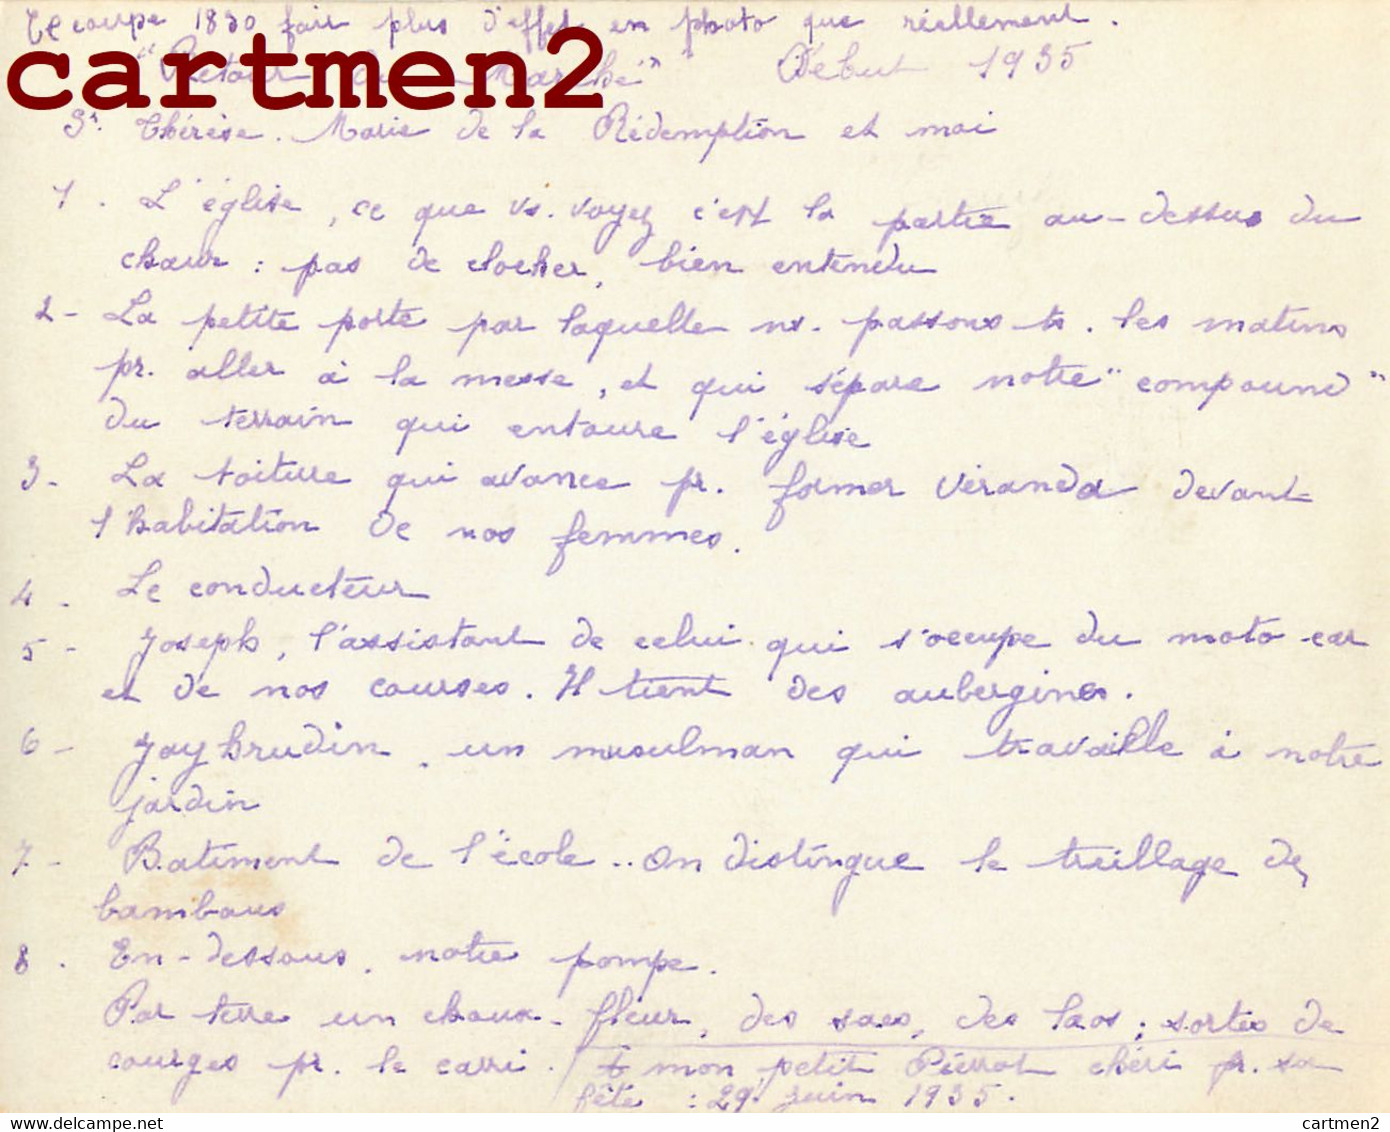 coupe 1830 fait plus d'effet en photo que réellement.
cartmen2
"Retour du Marché" Début 1935
Sr. Thérèse. Marie de la Rédemption et moi
1. L'église, ce que vs. voyez c'est la partie au-dessus du
chœur : pas de clocher, bien entendu
2- La petite porte par laquelle ns. passons ts. les matins
pr. aller à la messe, et qui sépare notre "compound"
du terrain qui entoure l'église
3- La toiture qui avance pr. former véranda devant
l'habitation de nos femmes.
4. Le conducteur
5- Joseph, l'assistant de celui qui s'occupe du moto-car
et de nos courses. Il tient des aubergines.
6- Jaybrudin, un musulman qui travaille à notre
jardin
7- Batiment de l'école.. On distingue le treillage de
bambous
8. En-dessous, notre pompe.
Par terre un choux-fleur, des sacs, des laos; sortes de
courges pr. le carri.
à mon petit Pierrot chéri pr. sa
fête : 29 juin 1935.
cartmen2